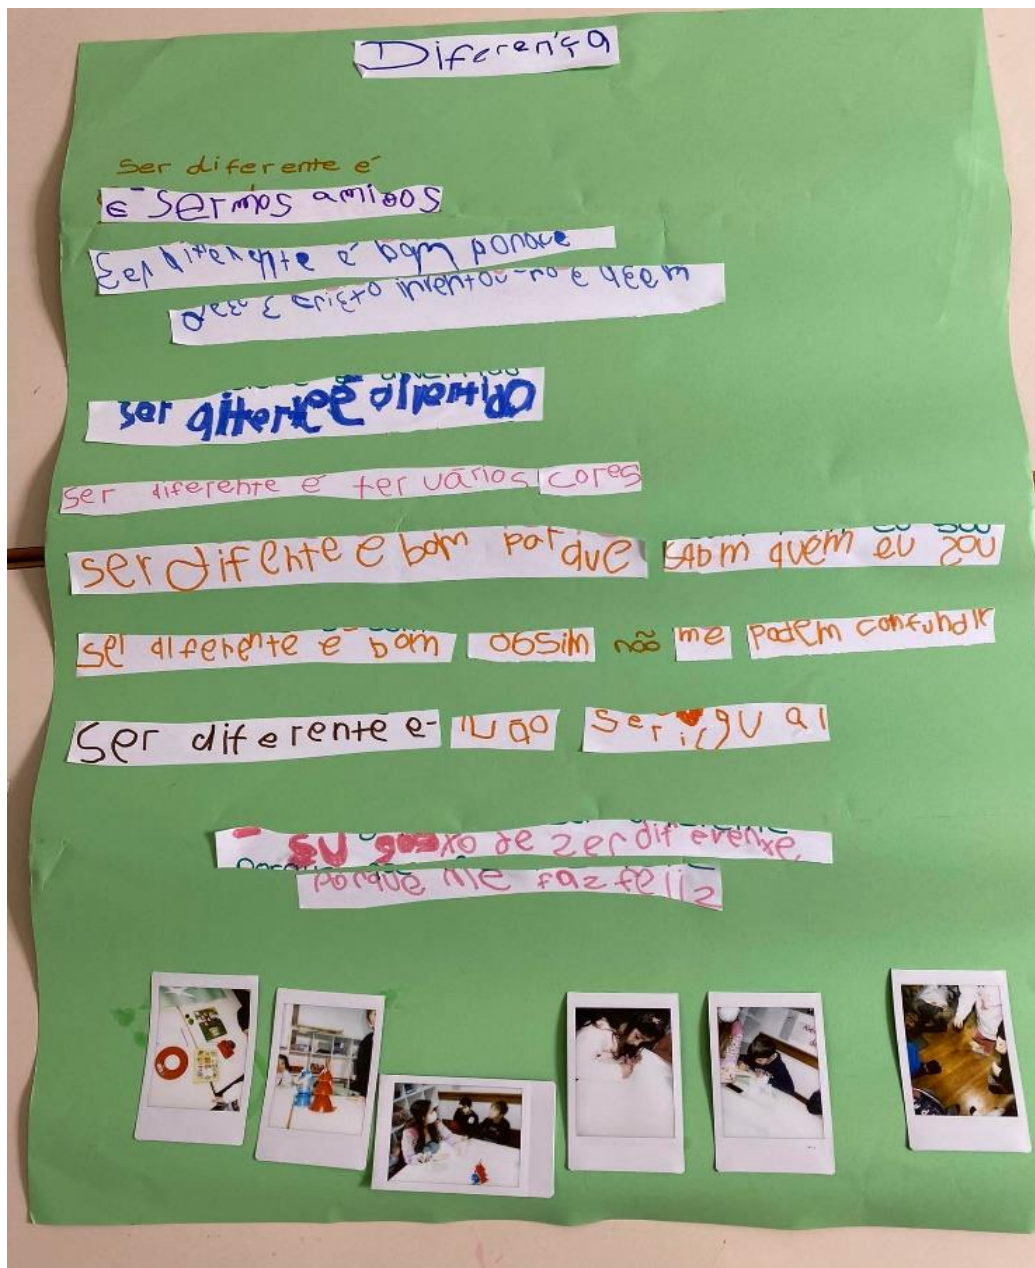 Diferença
Ser diferente é
É sermos amigos
Ser diferente é bom porque
ser diferte é divertido
ser diferente é ter vários cores
ser difente e bom porque sabm quem eu sou
ser diferente e bom assim não me podem confundir
Ser diferente é não ser igual
eu goxo de zer diferenxe
porque me faz feliz